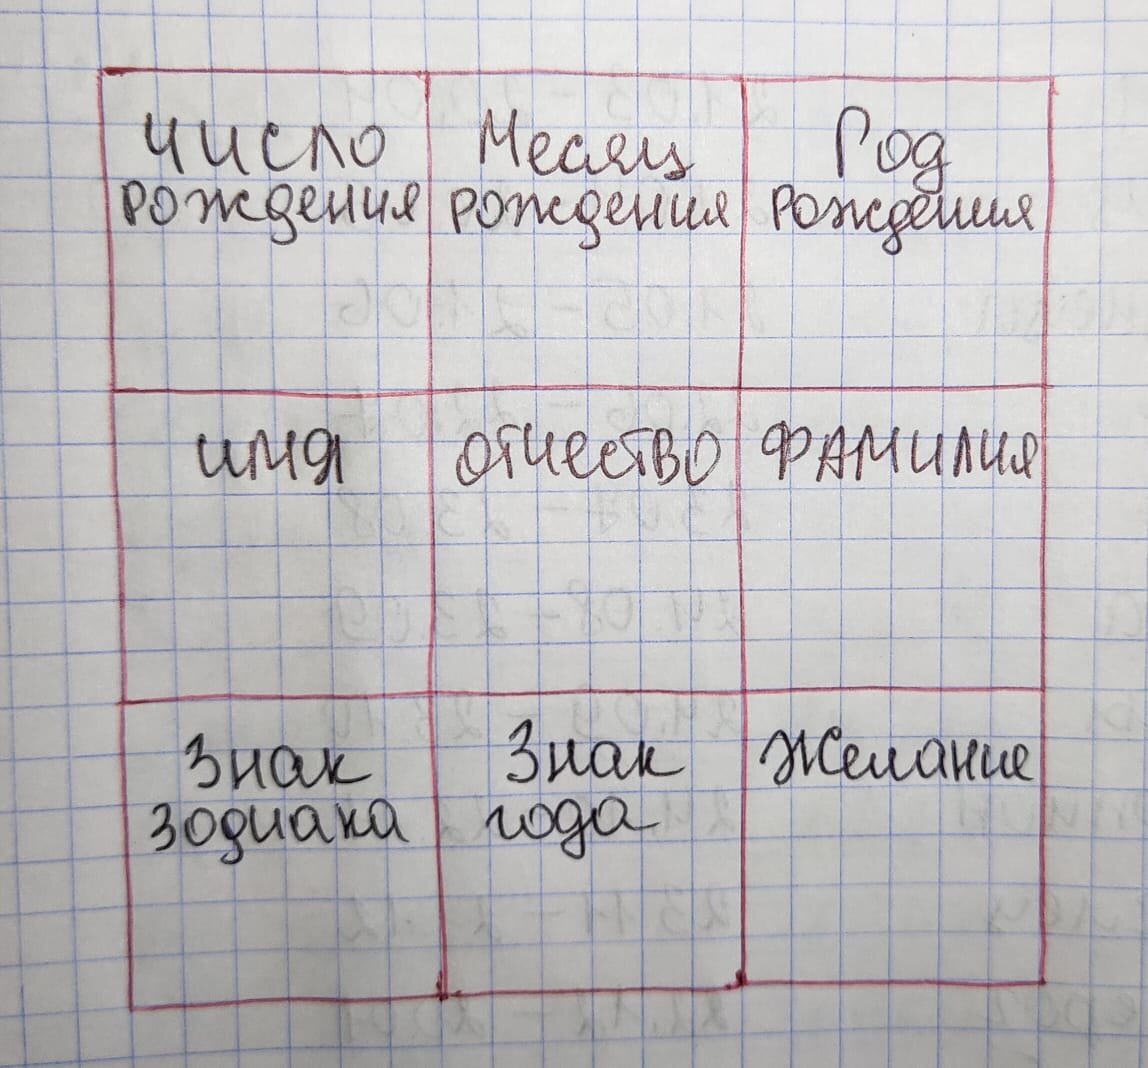 Число
рождения
Месяц
рождения
Год
рождения
имя
отчество
ФАМИЛИЯ
Знак
зодиака
Знак
года
Желание
21.05 - 21.06
24.08 - 23.09